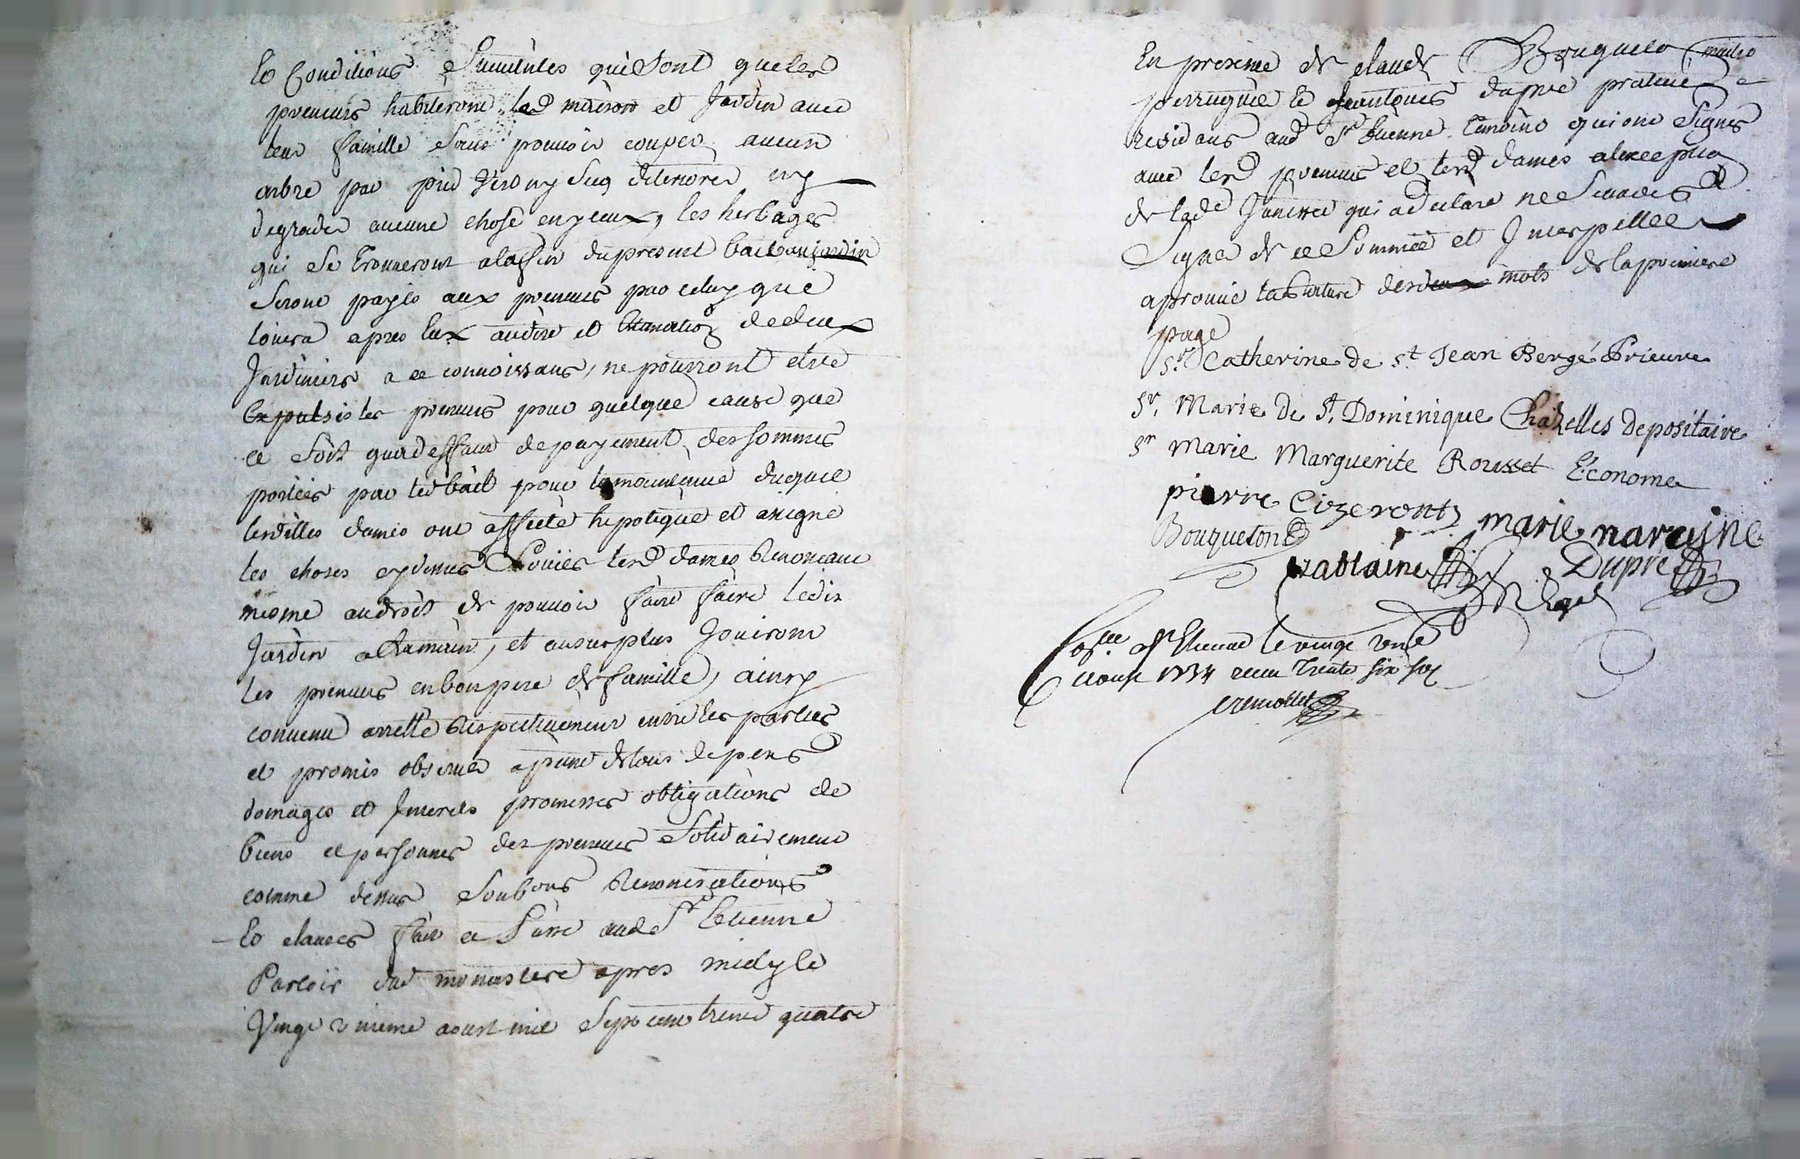 Et Conditions Suivantes qui sont que les
preneurs habiteront lad maison et Jardin avec
leur famille sans pouvoir couper aucun
arbre par pied ny
degrader aucune chose en yceux, les herbages
qui se trouveront a la fin du present bail au jardin
seront payés aux preneurs par celuy qui
louera apres Eux au dire et Estimation de deux
Jardiniers a ce connoissans, ne pourront etre
Expulsés les preneurs pour quelque cause que
ce soit qu'a deffaut de payement des sommes
portées par led bail pour la maintenue duquel
lesdittes dames ont affecté hipotequé et asigné
les choses cy dessus Louées lesd dames Renonceant
mesme au droit de pouvoir faire faire ledit
Jardin a Leur main, et au surplus Jouiront
les preneurs en bon pere de famille, ainsy
convenu arretté Respectivement entre les parties
et promis observer a peine de tous depens
domages et Interets promesses obligations de
biens et personnes des preneurs solidairement
comme dessus Soubons Renonciations
Et clauses fait et Passé aud St Etienne
Parloir dud monastere apres midy le
Vingt aoust mil Sept cent trente quatre
En presence de claude Bouqueton maitre
perruquier et dupré praticien
residans aud St Etienne Temoins qui ont Signés
avec lesd preneurs et lesd dames
de lad qui a declaré ne Scavoir
Signer de ce Sommée et Interpellée
aprouvé la rature des deux mots de la premiere
page
Sr. Catherine de St Jean Bergé Prieure
Sr. Marie de St. Dominique Chazelles depositaire
Sr Marie Marguerite Rousset Econome
pierre Cizeront marie narcysne
Bouqueton
vablaine Dupré
Colle. a St Etienne le vingt
aoust 1734 recu Trente six sols